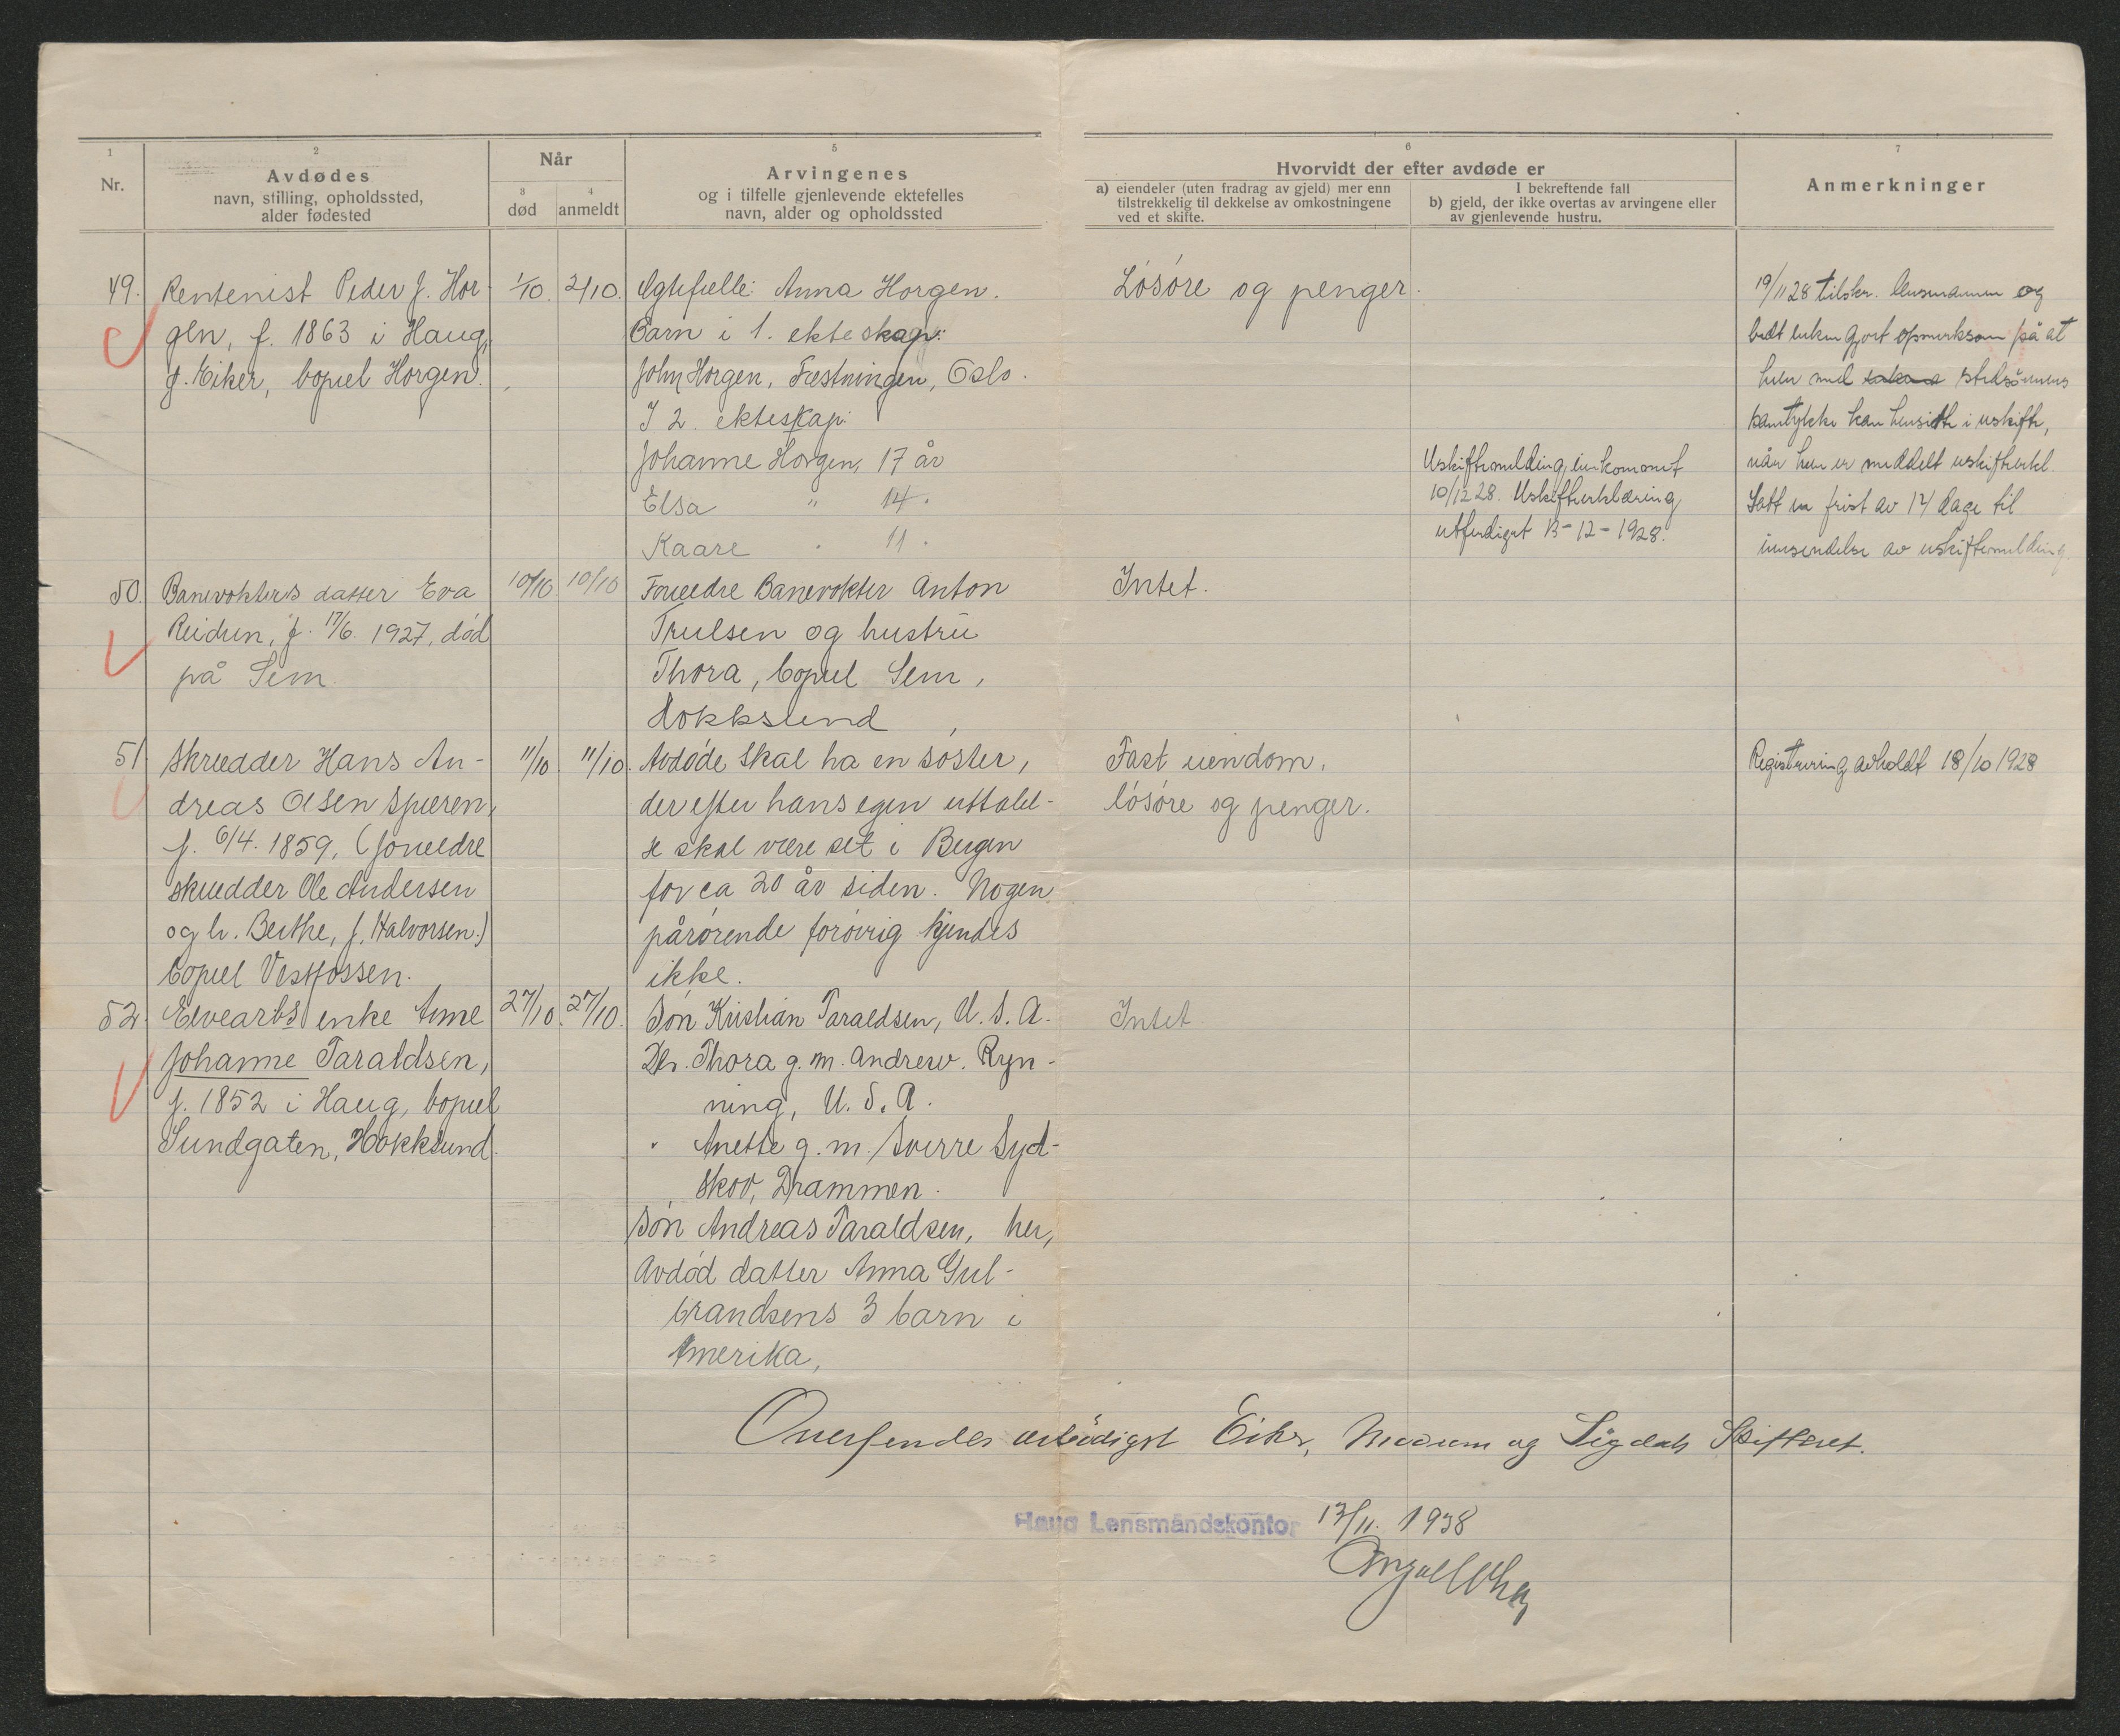 1
Nr.
2
Avdødes
navn, stilling, opholdssted,
alder fødested
Når
3
død
4
anmeldt
5
Arvingenes
og i tilfelle gjenlevende ektefelles
navn, alder og opholdssted
6
Hvorvidt der efter avdøde er
a) eiendeler (uten fradrag av gjeld) mer enn
tilstrekkelig til dekkelse av omkostningene
ved et skifte.
I bekreftende fall
b) gjeld, der ikke overtas av arvingene eller
av gjenlevende hustru.
7
Anmerkninger
49. Rentenist Peder J. Hor-
gen, f. 1863 i Haug,
ø. Eiker, bopæl Horgen.
1/10. 2/10.
Egtefælle: Anna Horgen.
Barn i 1. ekteskap:
John Horgen, Fæstningen, Oslo.
I 2. ekteskap:
Johanne Horgen, 17 år
Elsa " 14 "
Kaare " 11 "
Løsøre og penger.
Uskiftemelding innkommet
10/12 28. Uskifteerklæring
utferdiget 13-12-1928.
19/11 28 tilskr. lensmannen og
bedt enken gjort opmerksom på at
hun med stedsønnens
samtykke kan hensitte i uskifte,
når hun er meddelt uskifteerkl.
Satt en frist av 14 dage til
innsendelse av uskiftemelding.
50. Banevokters datter Eva
Reidun, f. 17/6. 1927, død
på Sem
10/10 10/10
Foreldre Banevokter Anton
Trulsen og hustru
Thora, bopæl Sem,
Hokksund
Intet.
51 Skrædder Hans An-
dreas Olsen Spæren,
f. 6/4. 1859, (foreldre
skrædder Ole Andersen
og h. Berthe, f. Halvorsen.)
bopæl Vestfossen.
11/10 11/10.
Avdøde skal ha en søster,
der efter hans egen uttalel-
se skal være set i Bergen
for ca 20 år siden. Nogen
pårørende forøvrig kjendes
ikke.
Fast eiendom,
løsøre og penger.
Registrering avholdt 18/10 1928
52. Elvearb's enke Anne
Johanne Taraldsen,
f. 1852 i Haug, bopæl
Sundgaten, Hokksund.
27/10. 27/10.
Søn Kristian Taraldsen, U. S. A.
Dtr. Thora g. m. Andrew. Ryn-
ning, U. S. A.
" Anette g. m. Sverre Syd-
skov, Drammen.
Søn Andreas Taraldsen, her,
Avdød datter Anna Gul-
brandsens 3 barn i
Amerika,
Intet
Oversendes ærbødigst Eiker, Modum og Sigdals Skifteret.
Haug Lensmandskontor 13/11. 1928